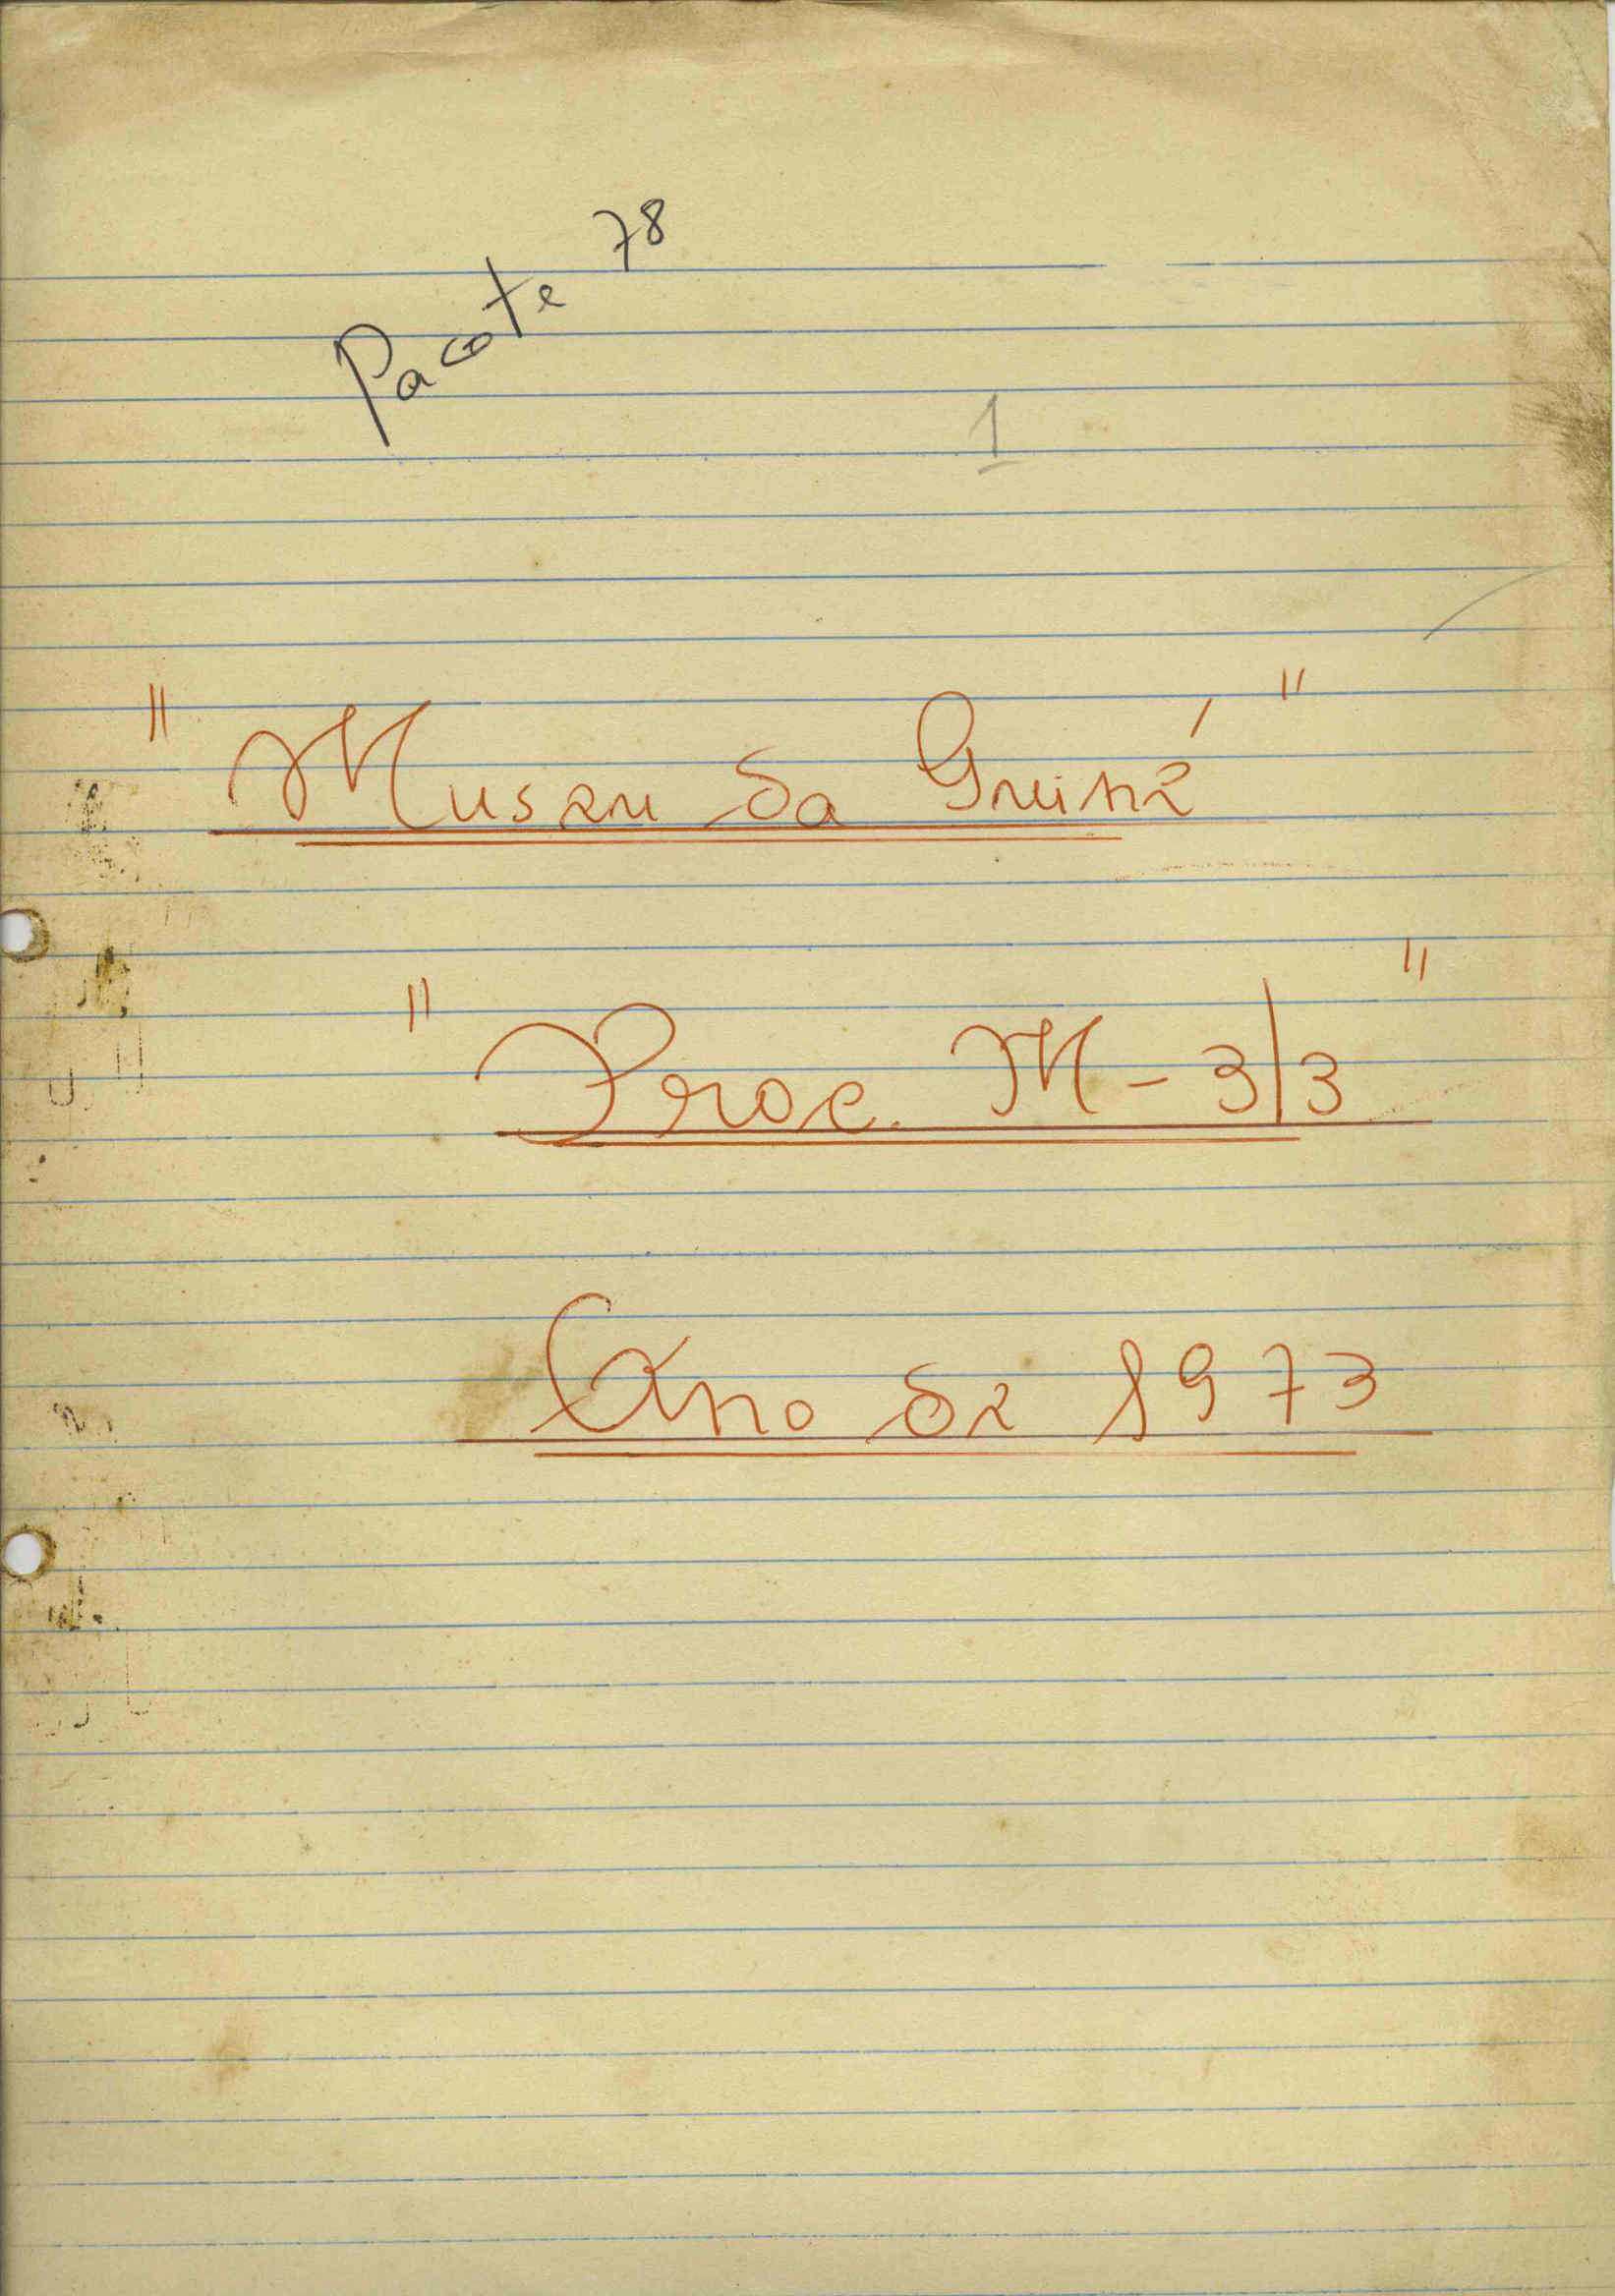 Pacote 78
1
"Museu da Guiné"
"Proc. M-3/3"
Ano de 1973